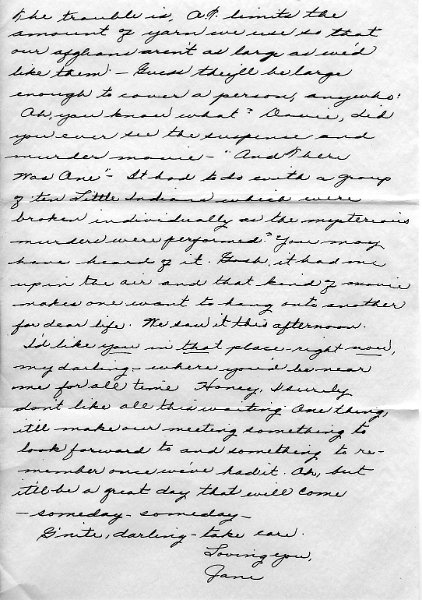 The trouble is, A.P. limits the
amount of yarn we use so that
our afghans aren't as large as we'd
like them – Guess they'll be large
enough to cover a person, anywho!
Ah, you know what? Davie, did
you ever see the suspense and
murder movie – "And There
Was One" – It had to do with a group
of ten Little Indians which were
broken individually as the mysterious
murders were performed? You may
have heard of it. Gosh, it had me
up in the air and that kind of movie
makes one want to hang onto another
for dear life. We saw it this afternoon.
I'd like you in that place – right now,
my darling – where you'd be near
me for all time Honey, I surely
don't like all this waiting. One thing,
it'll make our meeting something to
look forward to and something to re-
member once we've had it. Oh, but
it'll be a great day that will come
– someday – someday –
G'nite, darling – take care.
Loving you,
Jane